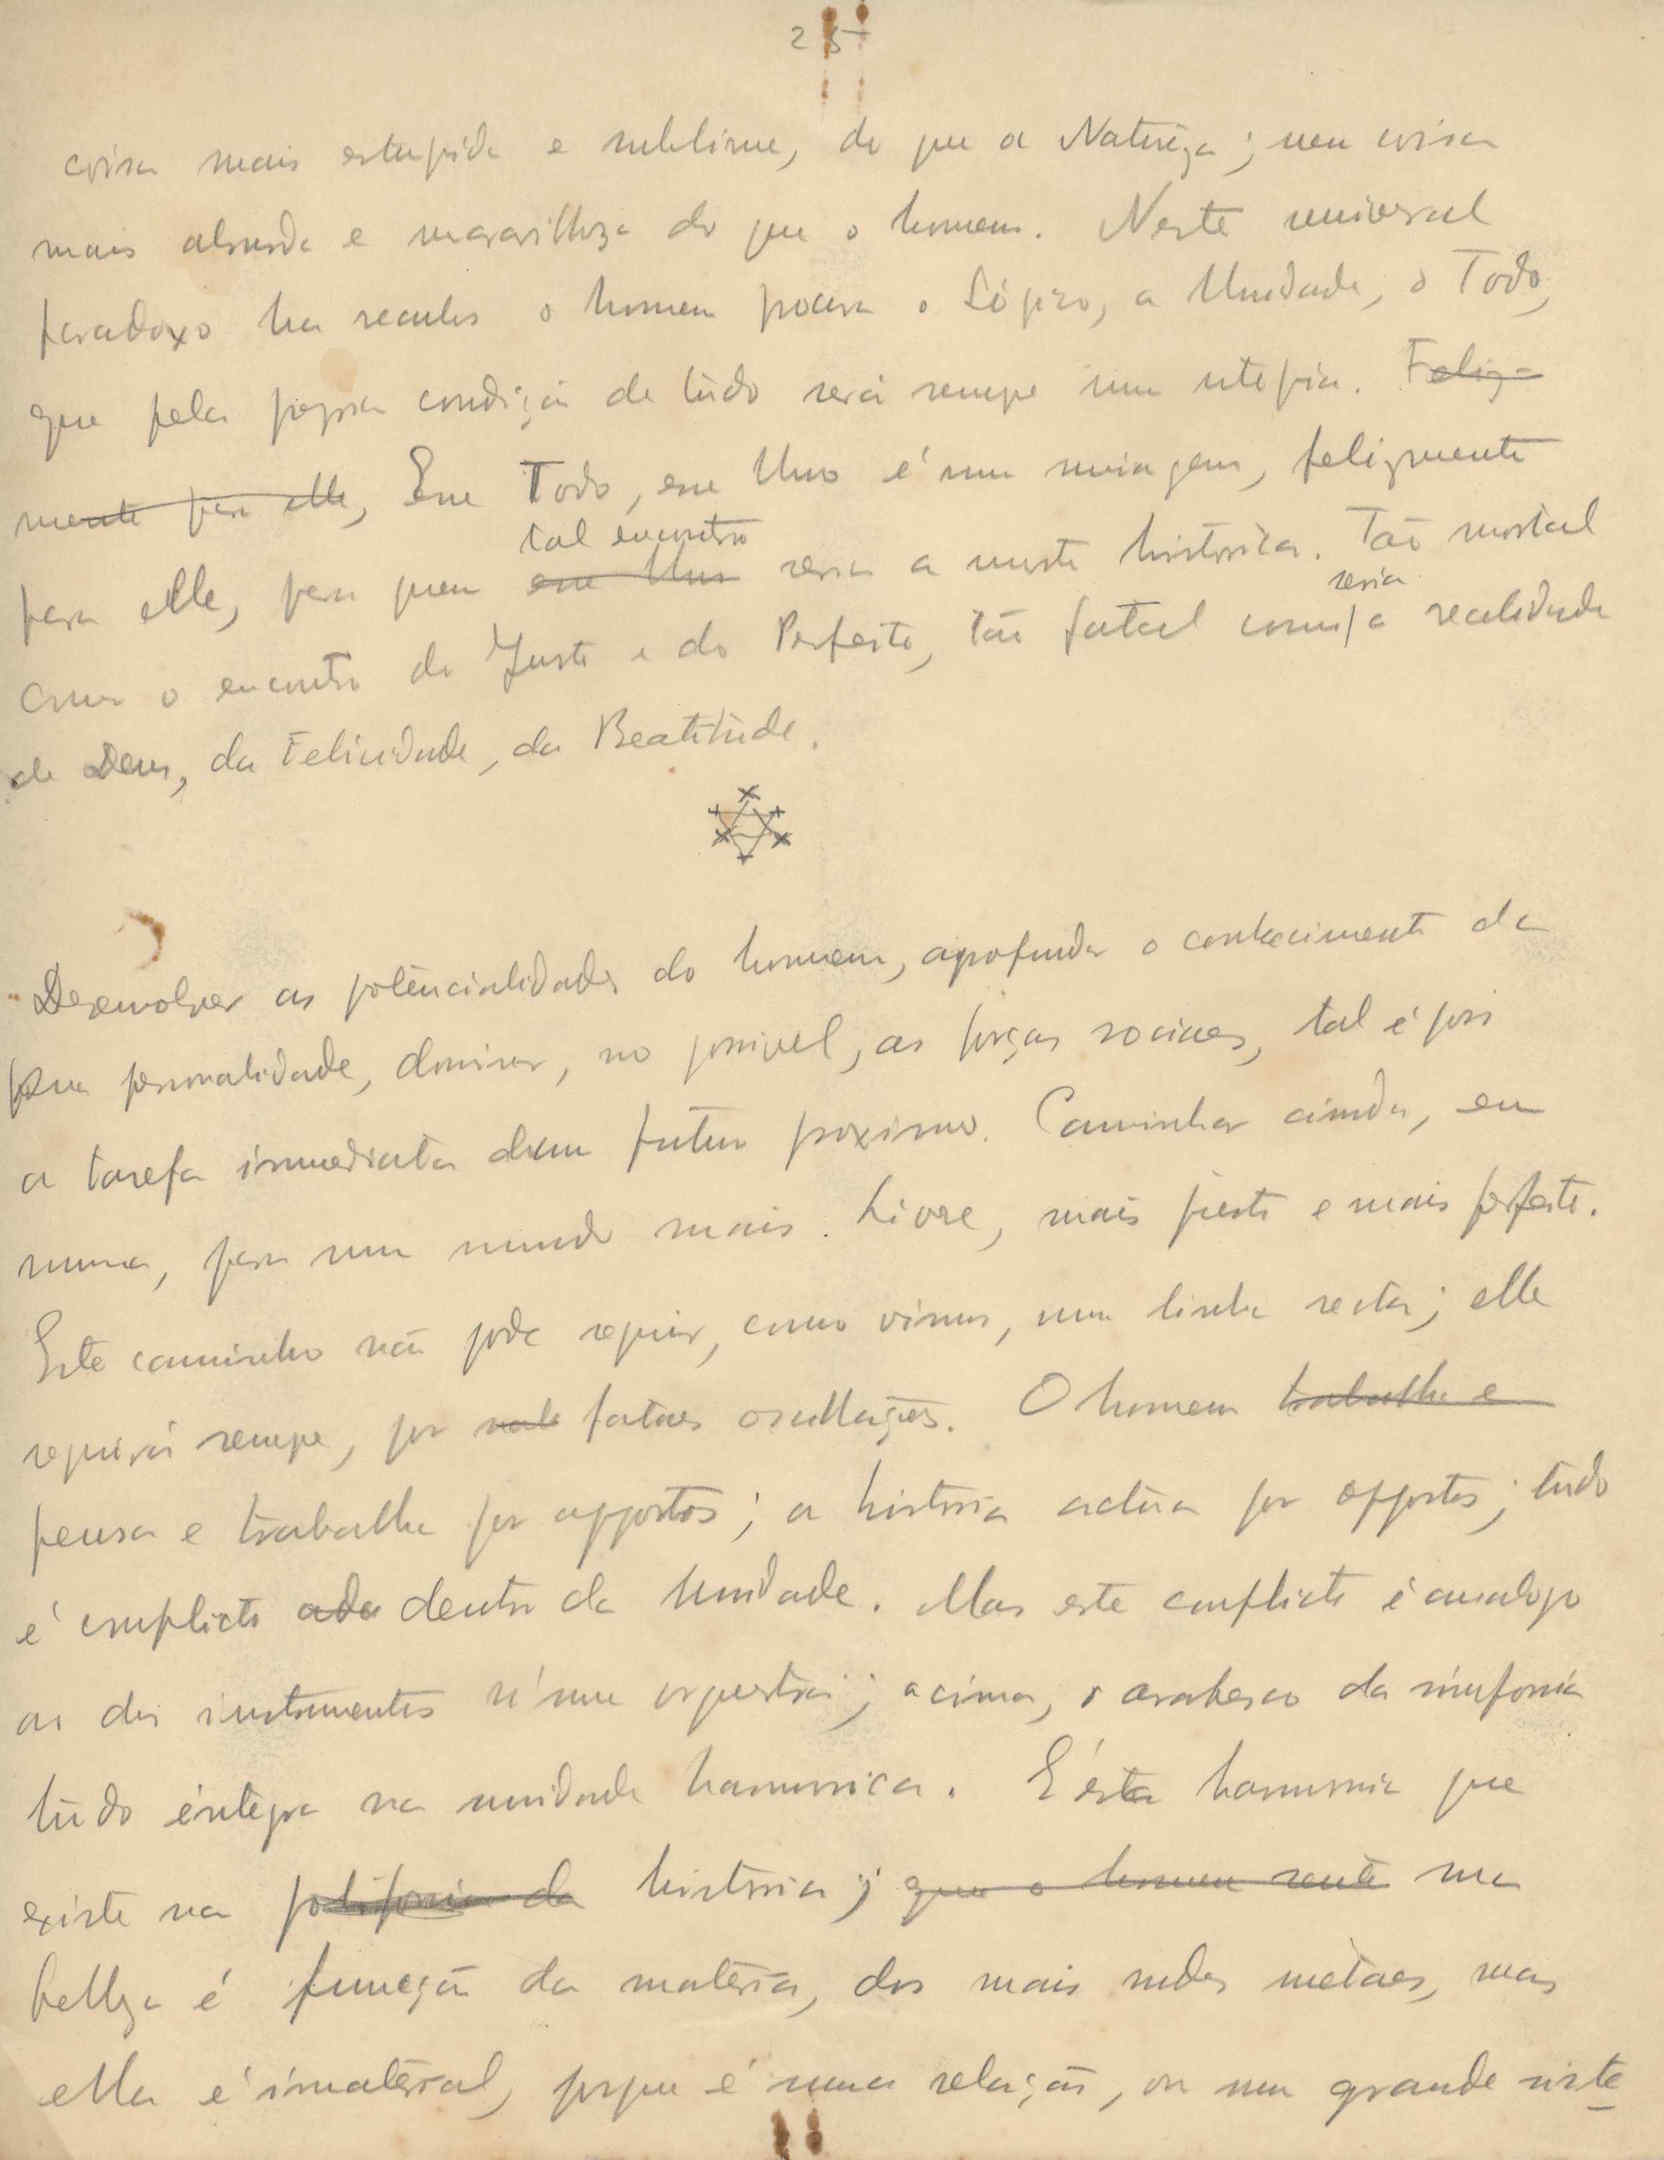 25
coisa mais estupida e sublime, do que a Natureza; nem coisa
mais absurda e maravilhoza do que o homem. Neste universal
paradoxo ha seculos o homem procura o Lógico, a Unidade, o Todo,
que pela propria condição de tudo será sempre uma utopia. Feliz-
mente para elle, Esse Todo, esse Uno é uma miragem, felizmente
tal encontro
para elle, para quem esse Uno seria a morte historica. Tão mortal
seria
como o encontro do Justo e do Perfeito, tão fatal como a realidade
de Deus, da Felicidade, da Beatitude.
Dezenvolver as potencialidades do homem, aprofundar o conhecimento da
sua personalidade, dominar, no possivel, as forças sociaes, tal é pois
a tarefa immediata dum futuro proximo. Caminhar ainda, em
summa, para um mundo mais livre, mais justo e mais perfeito.
Este caminho não pode seguir, como vimos, uma linha recta; elle
seguirá sempre, por fataes oscillações. O homem trabalha e
pensa e trabalha por oppostos; a historia actúa por oppostos; tudo
é conflicto dentro da Unidade. Mas este conflicto é analogo
ao dos instrumentos n'uma orquestra; acima, o arabesco da sinfonia
tudo integra na unidade harmonica. E' esta harmonia que
existe na polifonia da historia; que o homem sente sua
belleza é funcção da materia, dos mais rudes metaes, mas
ella é imaterial, porque é uma relação, ou um grande siste